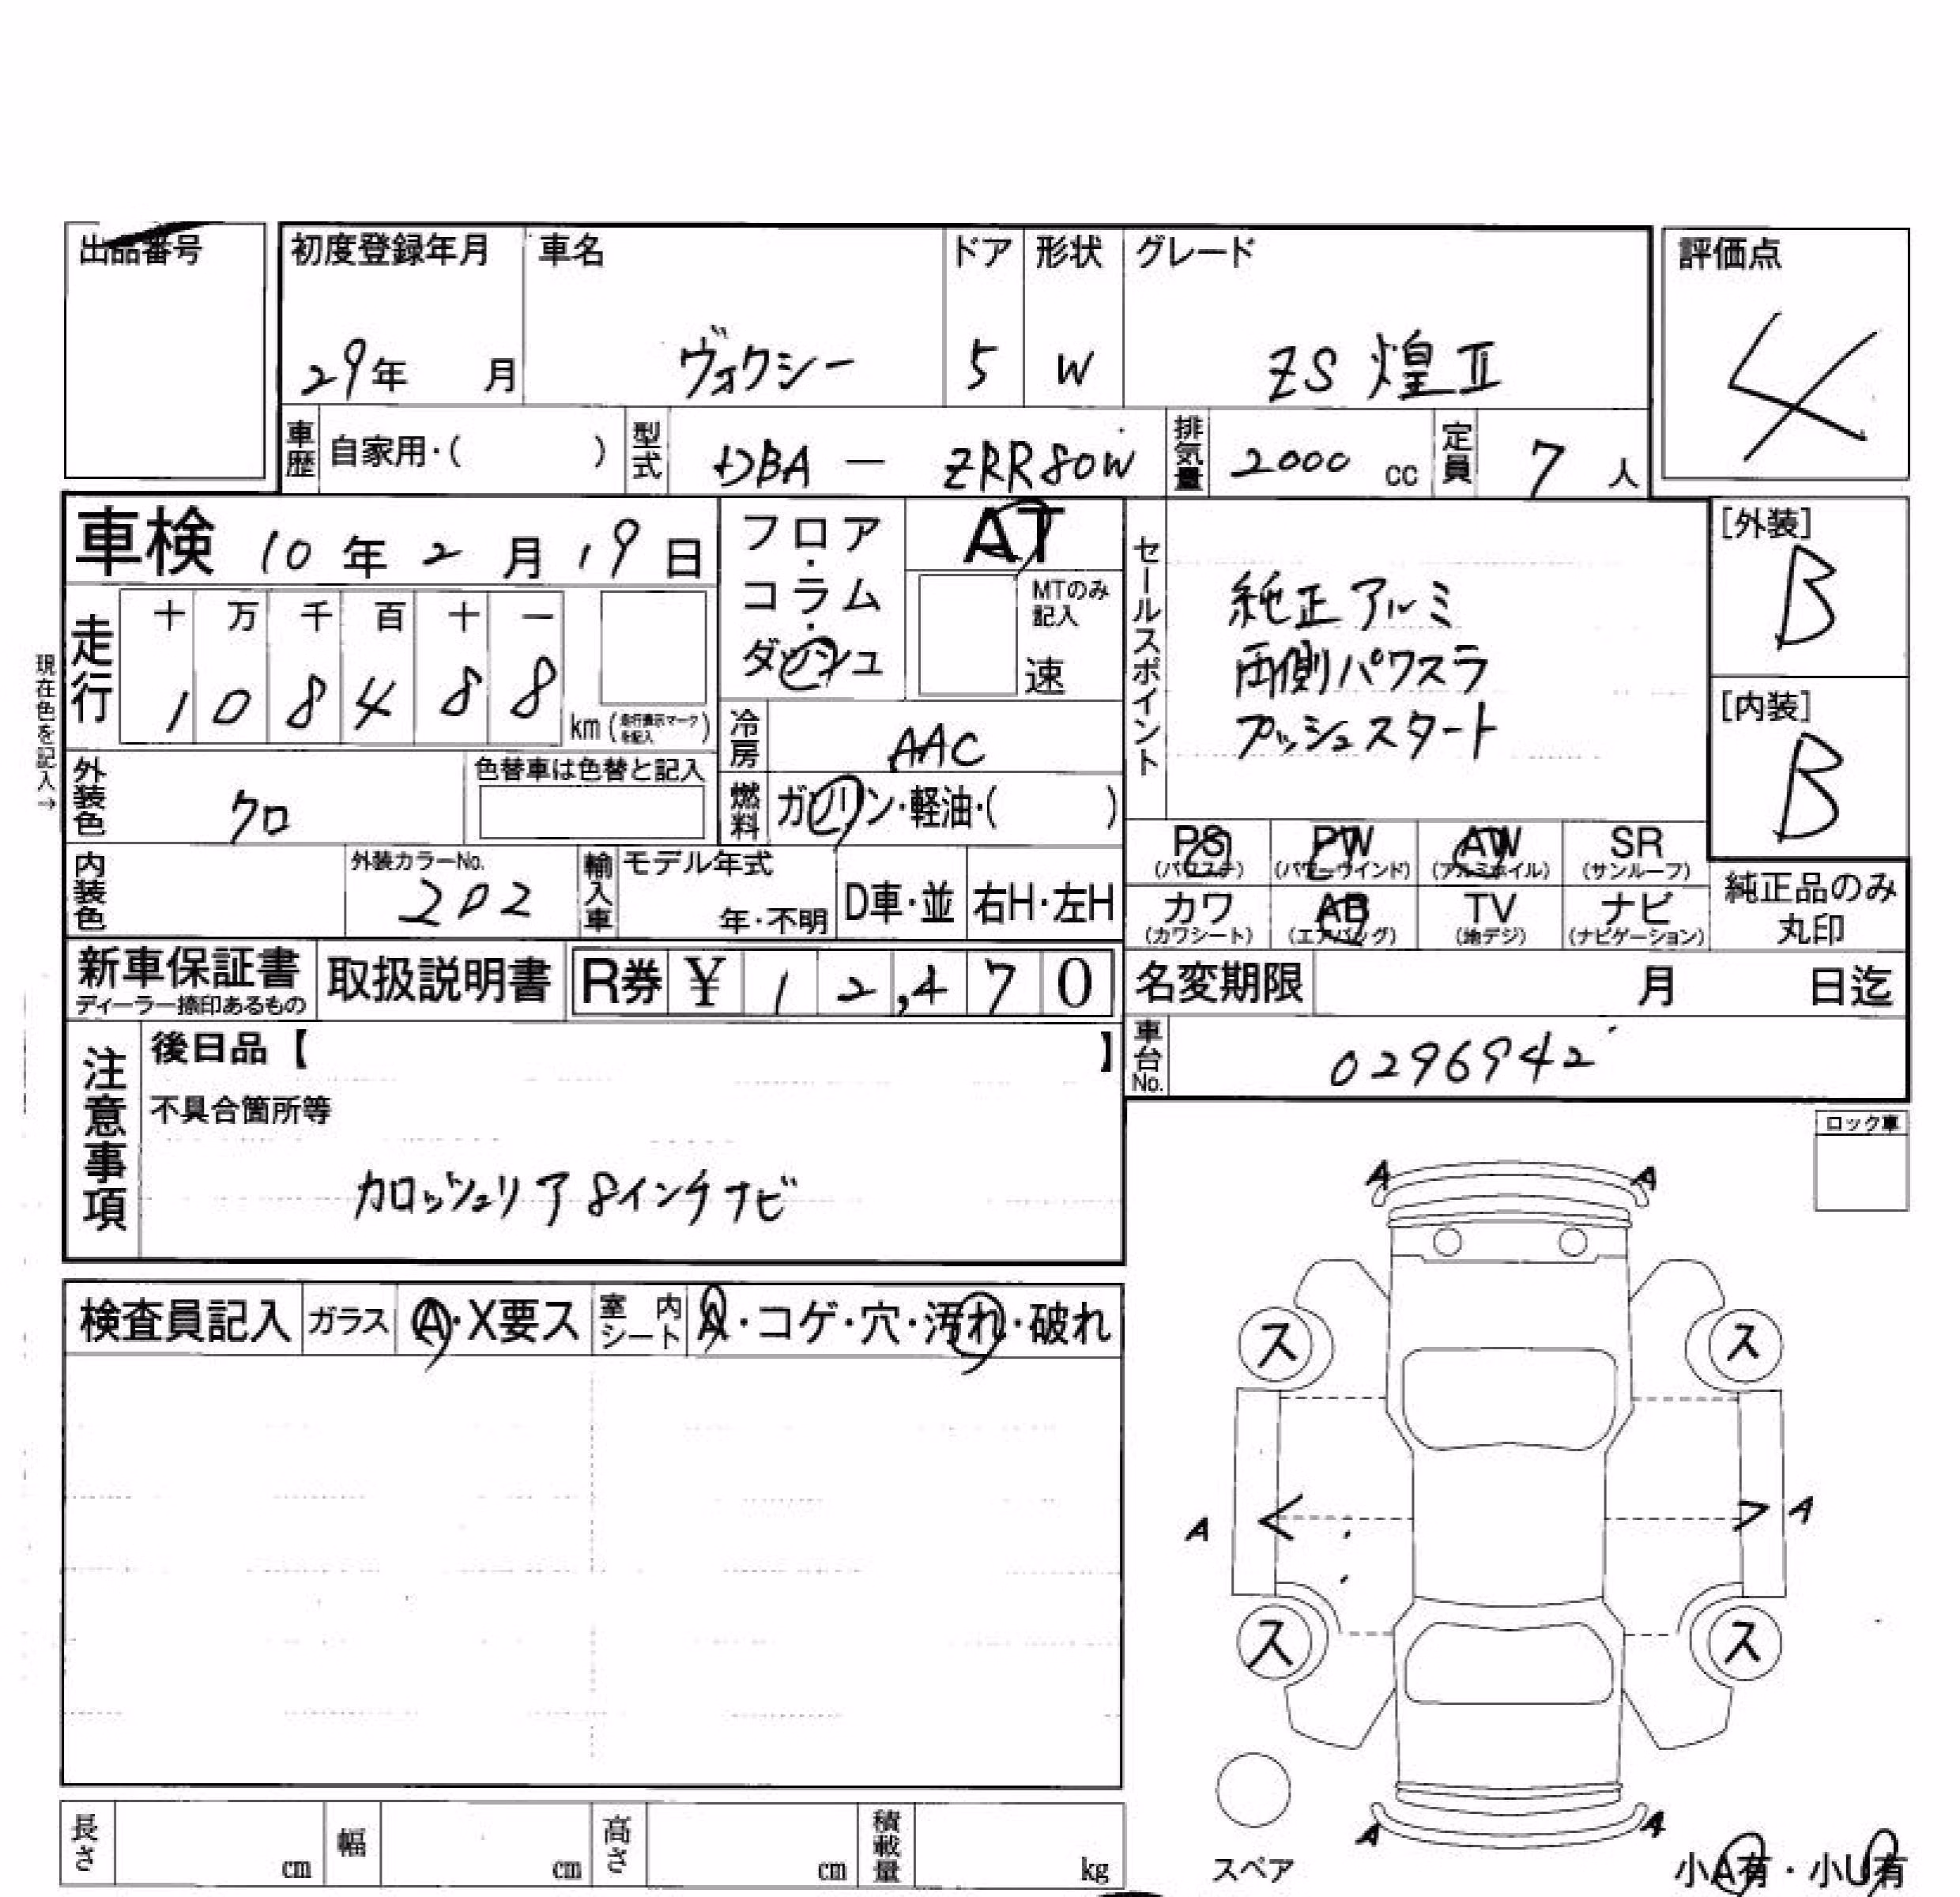 出品番号
初度登録年月 車名 ドア 形状 グレード 評価点
29年 月 ヴォクシー 5 W ZS 煌Ⅱ 4
車歴 自家用・( ) 型式 DBA - ZRR80W 排気量 2000 cc 定員 7 人
車検 10年 2月 19日
フロア・コラム・ダッシュ
AT
MTのみ記入
速
セールスポイント
純正アルミ
両側パワスラ
プッシュスタート
[外装]
B
[内装]
B
現在色を記入→
走行 十 万 千 百 十 一
1 0 8 4 8 8 km (走行表示マークを記入)
冷房 AAC
外装色 クロ 色替車は色替と記入
燃料 ガソリン・軽油・( )
内装色 外装カラーNo. 202 輸入車 モデル年式 年・不明 D車・並 右H・左H
PS PW AW SR
(パワステ) (パワーウインド) (アルミホイル) (サンルーフ)
カワ AB TV ナビ
(カワシート) (エアバッグ) (地デジ) (ナビゲーション)
純正品のみ
丸印
新車保証書 取扱説明書 R券 ¥ 12,470
ディーラー捺印あるもの
名変期限 月 日迄
車台No. 0296942
注意事項
後日品【 】
不具合箇所等
カロッツェリア 8インチナビ
ロック車
検査員記入 ガラス A・X要ス 室内シート A・コゲ・穴・汚れ・破れ
A A
ス ス
A < > A
ス ス
A A
スペア
小A有・小U有
長さ cm 幅 cm 高さ cm 積載量 kg